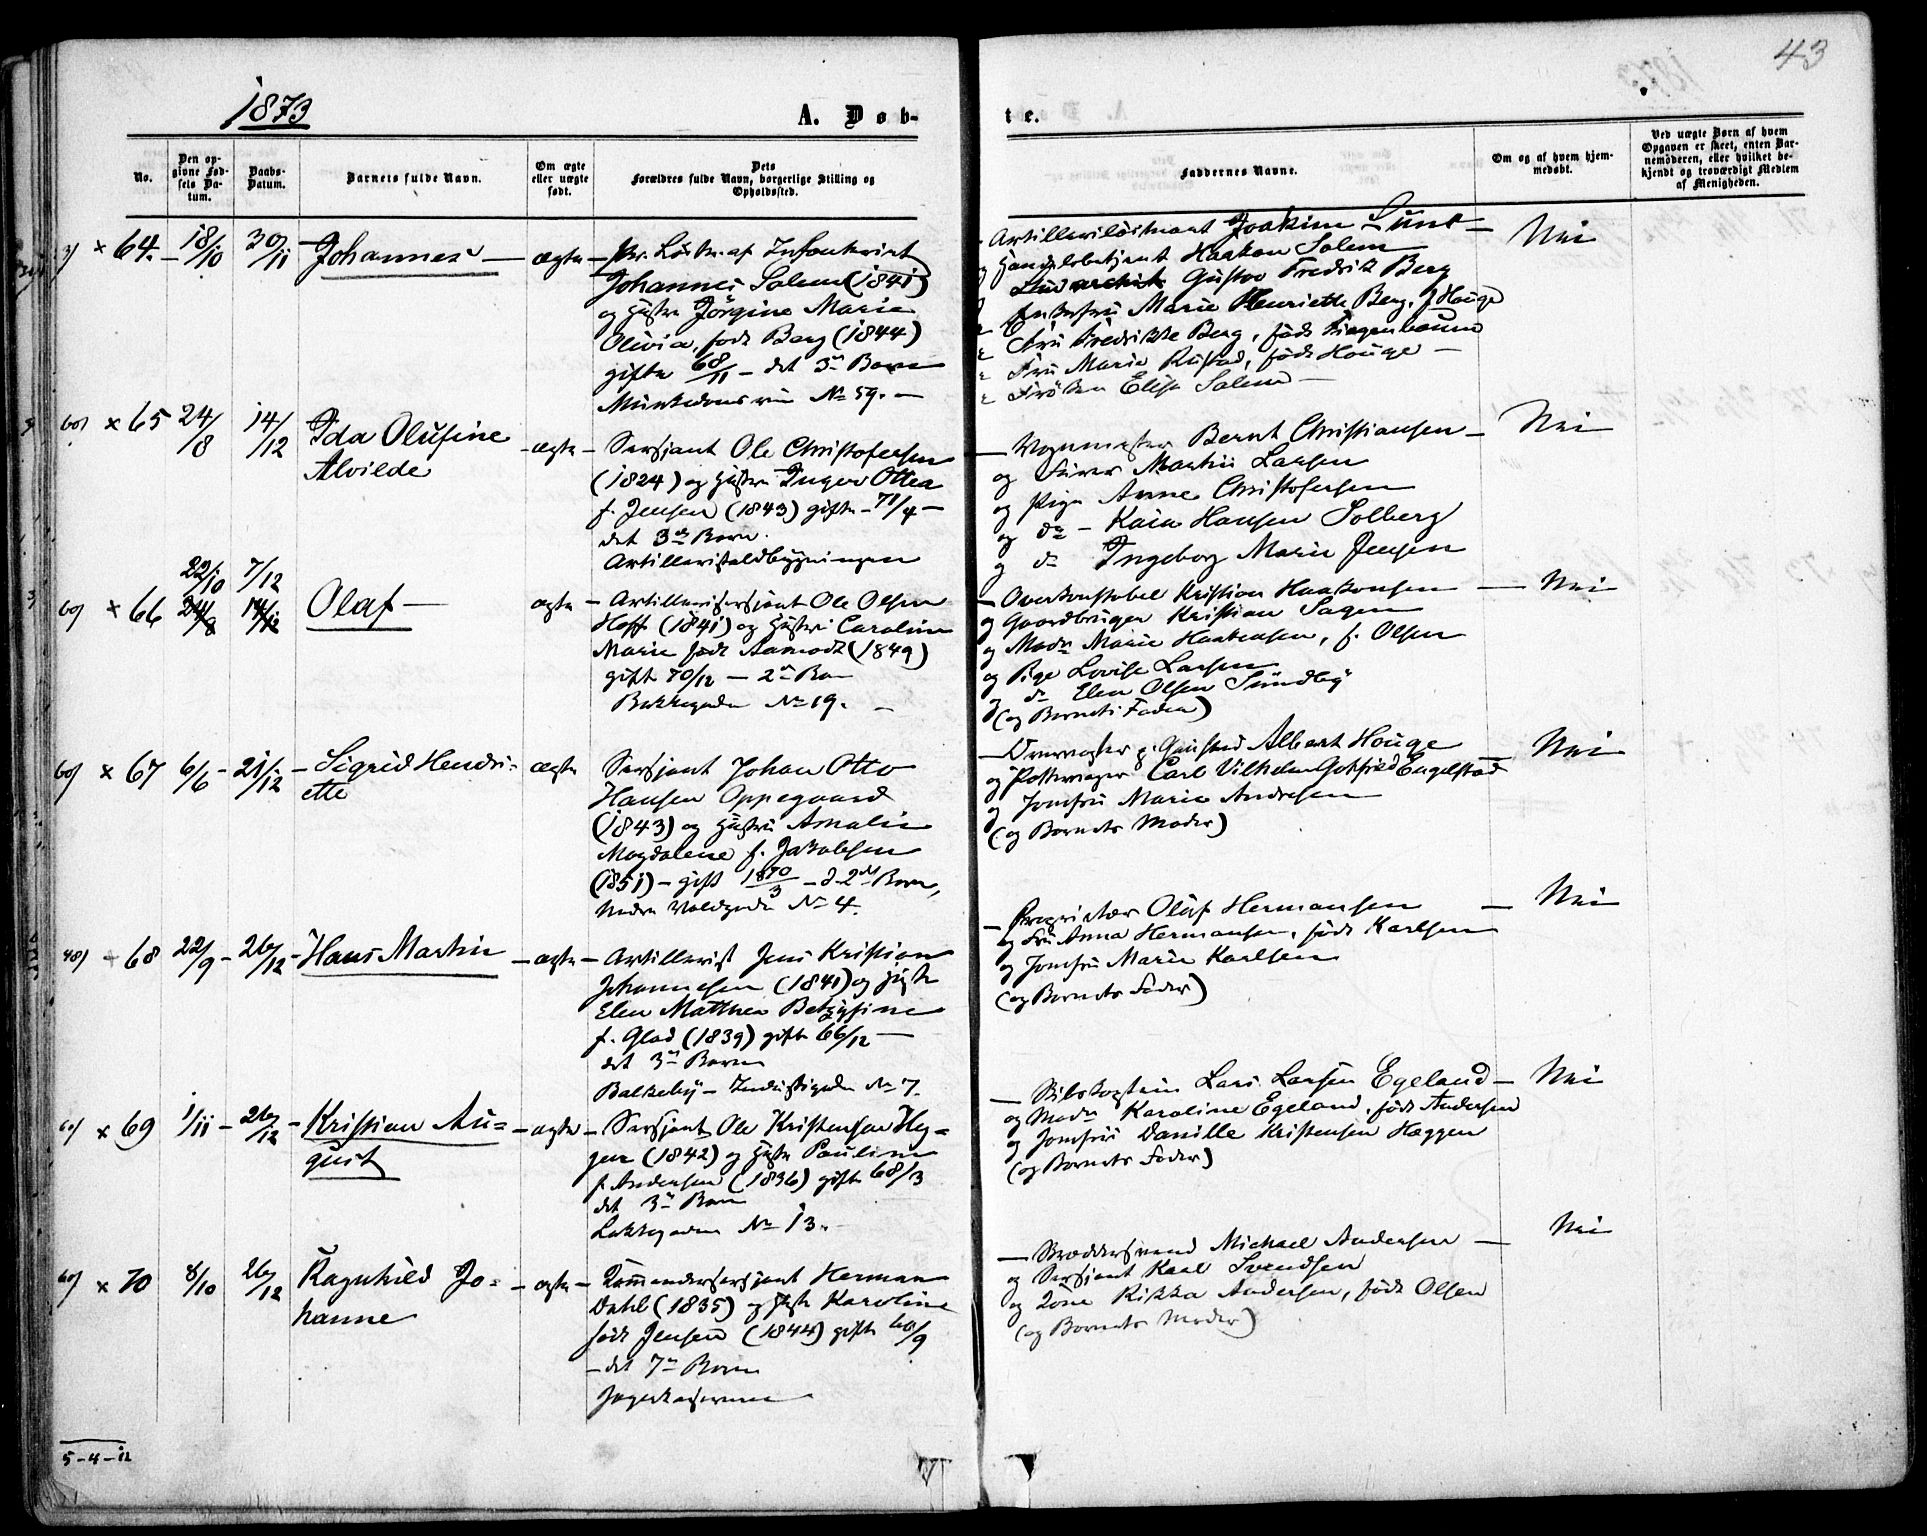 43
1873
A. Døb-
te.
No.
Den op-
givne Fød-
sels Da-
tum.
Daabs-
Datum.
Barnets fulde Navn.
Om ægte
eller uægte
født.
Dets
Forældres fulde Navn, borgerlige Stilling og
Opholdssted.
Faddernes Navne.
Om og af hvem hjem-
medøbt.
Ved uægte Børn af hvem
Opgaven er skeet, enten Bar-
nemoderen, eller hvilket be-
kjendt og troværdigt Medlem
af Menigheden.
× 64. – 18/10 30/11 Johannes – ægte –
Johannes Solem (1841)
og Hustru Jörgine Marie
Olivia, født Berg (1844)
gifte 68/11 – det 3die Barn
No 59. –
Artilleriløitnant Joakim Lund –
og Handelsbetjent Haakon Solem
Gustav Fredrik Berg
Marie Henriette Berg, f. Houge
Fru Fredrikke Berg, født
Fru Marie Rustad, født Houge –
Frøken Elise Solem –
Nei
60) × 65 24/8 14/12 Ida Olufine
Alvilde
– ægte – Sersjant Ole Christofersen
(1824) og Hustru Inger Ottea
f. Jensen (1843) gifte – 71/4 –
det 3die Barn.
Artilleristaldbygningen
– Vognmester Bernt Christiansen –
og Furer Martin Larsen
og Pige Anne Christofersen
og do – Kaia Hansen Solberg
og do Ingeborg Marie Jensen
Nei
60) × 66 22/10 7/12 24/8 14/12 Olaf –
ægte – Artillerisersjant Ole Olsen
Hoff (1841) og Hustru Caroline
Marie født Aamodt (1849)
gift 70/12 – 2det Barn
Bakkegaden No 19. –
– Overkonstabel Kristian Haakonsen –
og Gaardbruger Kristian Sagen
og Madm Marie Haakensen, f. Olsen
og Pige Lovise Larsen
og do Elen Olsen Sundby
(og Barnets Fader)
Nei
60) × 67 6/6 – 21/12 – Sigrid Hendri-
ette
ægte Sersjant Johan Otto
Hansen Oppegaard
(1843) og Hustru Amalie
Magdalene f. Jakobsen
(1851) – gift 1870/3 – d. 2det Barn,
Nedre Voldgade No 4.
Albert Houge
og Pottemager Carl Vilhelm Gotfried Engelstad
og Jomfru Marie Andresen
(og Barnets Moder)
Nei
48) + 68 22/9 – 26/12 – Hans Martin
– ægte – Artillerist Jens Kristian
Johannesen (1841) og Hustru
Elen Mathea
f. Glad (1839) gift 66/12 –
det 3die Barn
Balkeby – Industrigaden No 7.
– Proprietær Olaf Hermansen –
og Fru Anna Hermansen, født Karlsen
og Jomfru Marie Karlsen
(og Barnets Fader)
Nei
60) × 69 1/11 – 26/12 – Kristian Au=
gust
– ægte – Sersjant Ole Kristensen Hey=
gen (1842) og Hustru Pauline
f. Andersen (1836) gift 68/3
det 3die Barn
Lakkegaden No 13.
Lars Larsen Egeland –
og Madm Karoline Egeland, født Andersen
og Jomfru Kristensen Hæggen
(og Barnets Fader)
Nei
60) × 70 8/10 26/12 Ragnhild Jo=
hanne
– ægte – Kommandersersjant Herman
Dahl (1835) og Hustru Karoline
født Jensen (1844) gift 60/9
– det 7de Barn
Jægerkasernen
– Michael Andersen –
og Sersjant Karl Svendsen
og Kone Rikka Andersen, født Olsen
(og Barnets Moder)
Nei
5 – 4 – 12